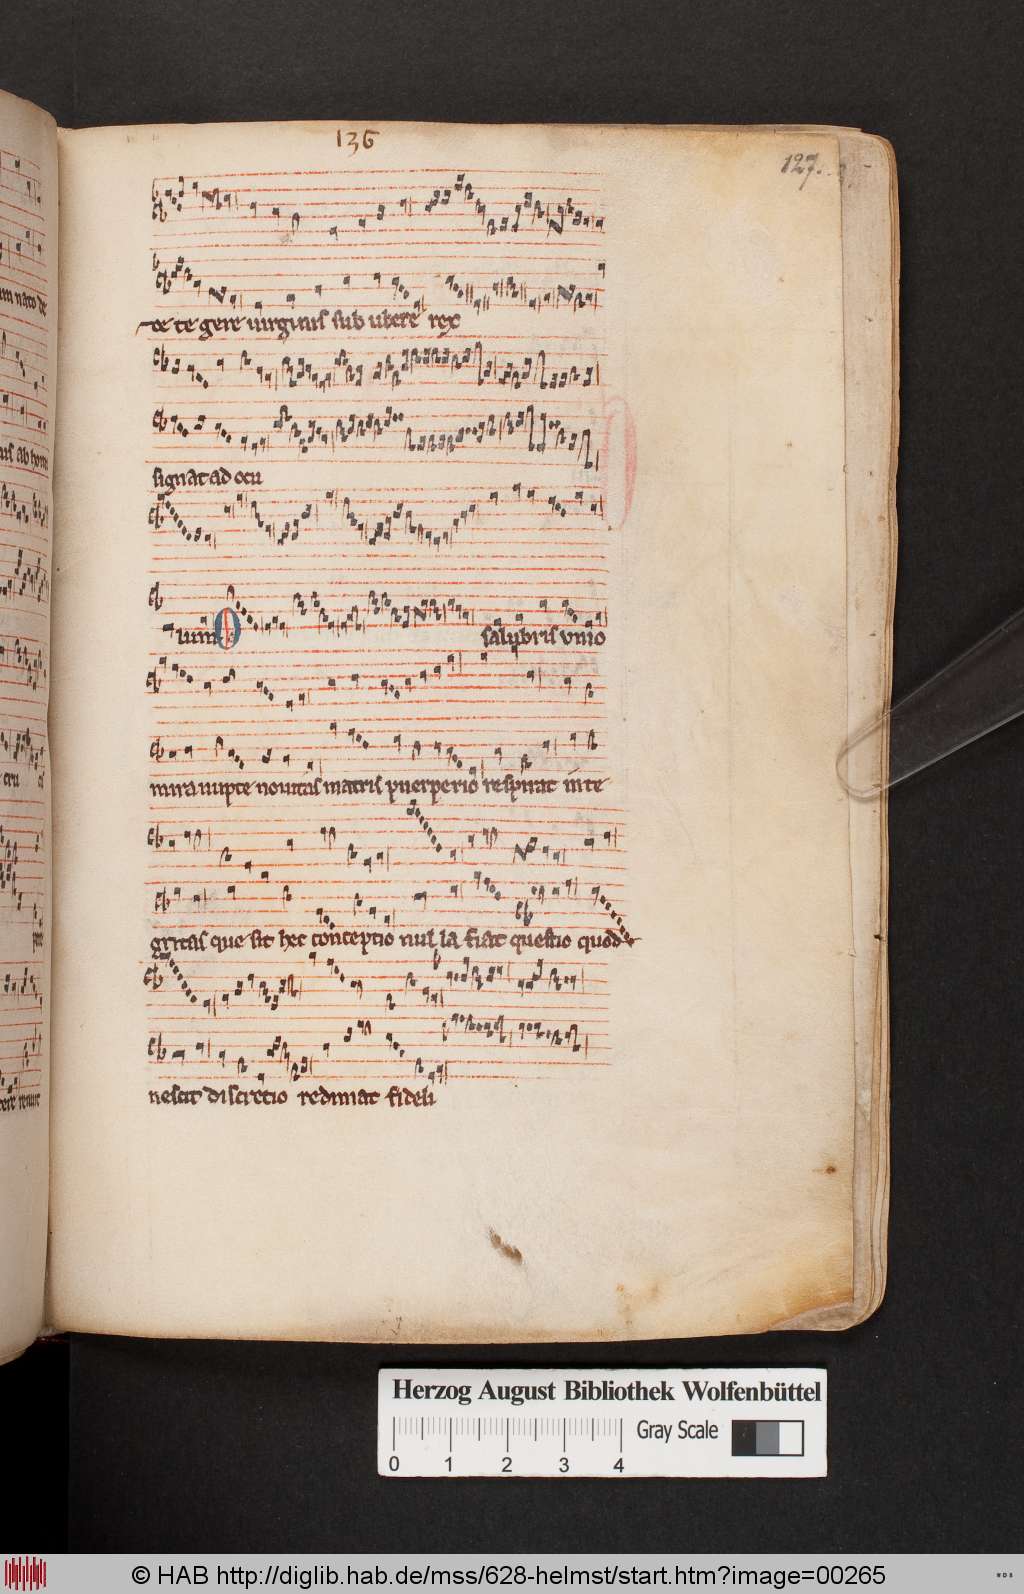 136
127.
de te gere uirginis sub ubere rex
signat ad ocu
lum O salubris unio
mira nupte nouitas matris puerperio respirat in te
gritas que sit hec conceptio nul la fiat questio quod
nescit discretio redimat fideli
Herzog August Bibliothek Wolfenbüttel
0 1 2 3 4 Gray Scale
© HAB http://diglib.hab.de/mss/628-helmst/start.htm?image=00265